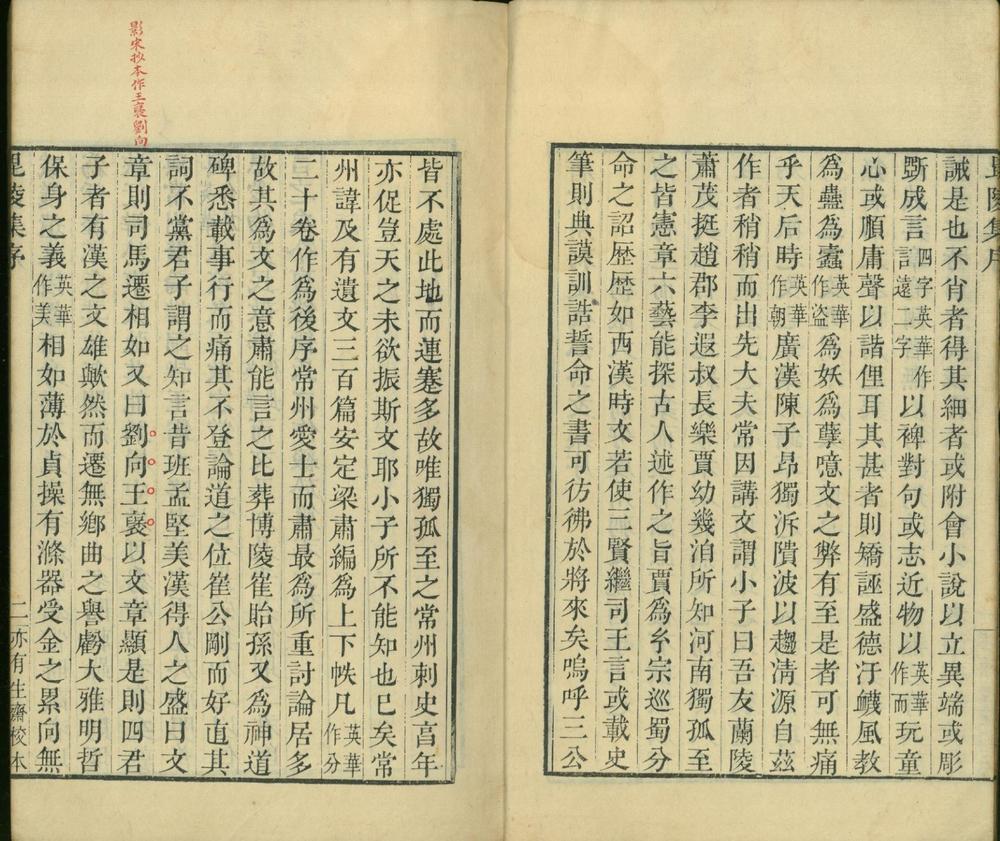 毘陵集序
誠是也不肖者得其細者或附會小說以立異端或彫
斲成言四字英華作言遠二字以裨對句或志近物以英華作而玩童
心或順庸聲以諧俚耳其甚者則矯誣盛德汙衊風教
為蠱為蠹英華作盜為妖為孽噫文之弊有至是者可無痛
乎天后時英華作朝廣漢陳子昂獨泝隤波以趨清源自茲
作者稍稍而出先大夫常因講文謂小子曰吾友蘭陵
蕭茂挺趙郡李遐叔長樂賈幼幾洎所知河南獨孤至
之皆憲章六藝能探古人述作之旨賈為玄宗巡蜀分
命之詔歷歷如西漢時文若使三賢繼司王言或載史
筆則典謨訓誥誓命之書可彷彿於將來矣嗚呼三公
皆不處此地而連蹇多故唯獨孤至之常州刺史享年
亦促豈天之未欲振斯文耶小子所不能知也已矣常
州諱及有遺文三百篇安定梁肅編為上下帙凡英華作分
二十卷作為後序常州愛士而肅最為所重討論居多
故其為文之意肅能言之比葬博陵崔貽孫又為神道
碑悉載事行而痛其不登論道之位崔公剛而好直其
詞不黨君子謂之知言昔班孟堅美漢得人之盛曰文
章則司馬遷相如又曰劉向王襃以文章顯是則四君
影宋抄本作王襃劉向
子者有漢之文雄歟然而遷無鄉曲之譽虧大雅明哲
保身之義英華作美相如薄於貞操有滌器受金之累向無
毘陵集序
二亦有生齋校本